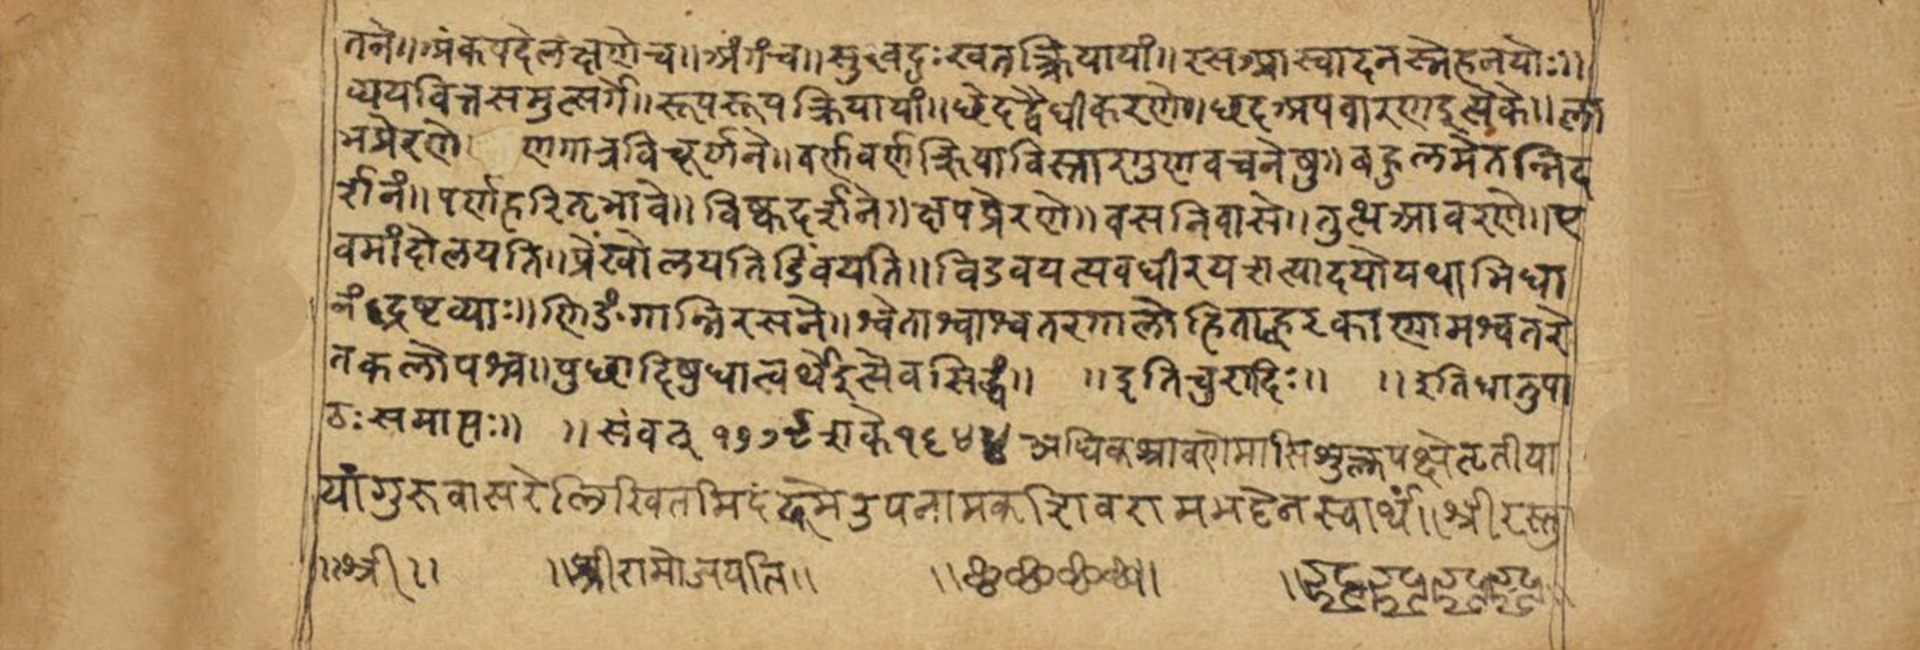 तने॥अंकपदेलक्षणेच॥अंगंच॥सुखदुःखतत्क्रियायां॥रसआस्वादनस्नेहनयोः॥
व्ययवित्तसमुत्सर्गे॥रूपरूपक्रियायां॥छेदद्वैधीकरणे॥छदअपवारणइत्येके॥ला
भप्रेरणे॥ णगात्रविचूर्णने॥वर्णवर्णक्रियाविस्तारगुणवचनेषु॥बहुलमेतन्निद
र्शनं॥पर्णहरितभावे॥विष्कदर्शने॥क्षपप्रेरणे॥वसनिवासे॥तुत्थआवरणे॥ए
वमांदोलयति॥प्रेंखोलयतिडिंवयति॥विडवयत्यवधीरयत्यादयोयथाभिधा
नंद्रष्टव्याः॥णिङंगान्निरसने॥श्वेताश्वाश्वतरगालोहिताह्वरकाणामश्वतरे
तकलोपश्च॥पुछादिषुधात्वर्थइत्येवसिद्धं॥ ॥इतिचुरादिः॥ ॥इतिधातुपा
ठः समाप्तः॥ ॥संवत् १७७९ शके१६४४ अधिकश्रावणेमासिशुक्लपक्षेतृतीया
यांगुरूवासरेलिखितमिदं उपनामकशिवरामभट्टेनस्वार्थं॥श्रीरस्तु
॥श्री॥ ॥श्रीरामोजयति॥ ॥छ छ छ छ॥